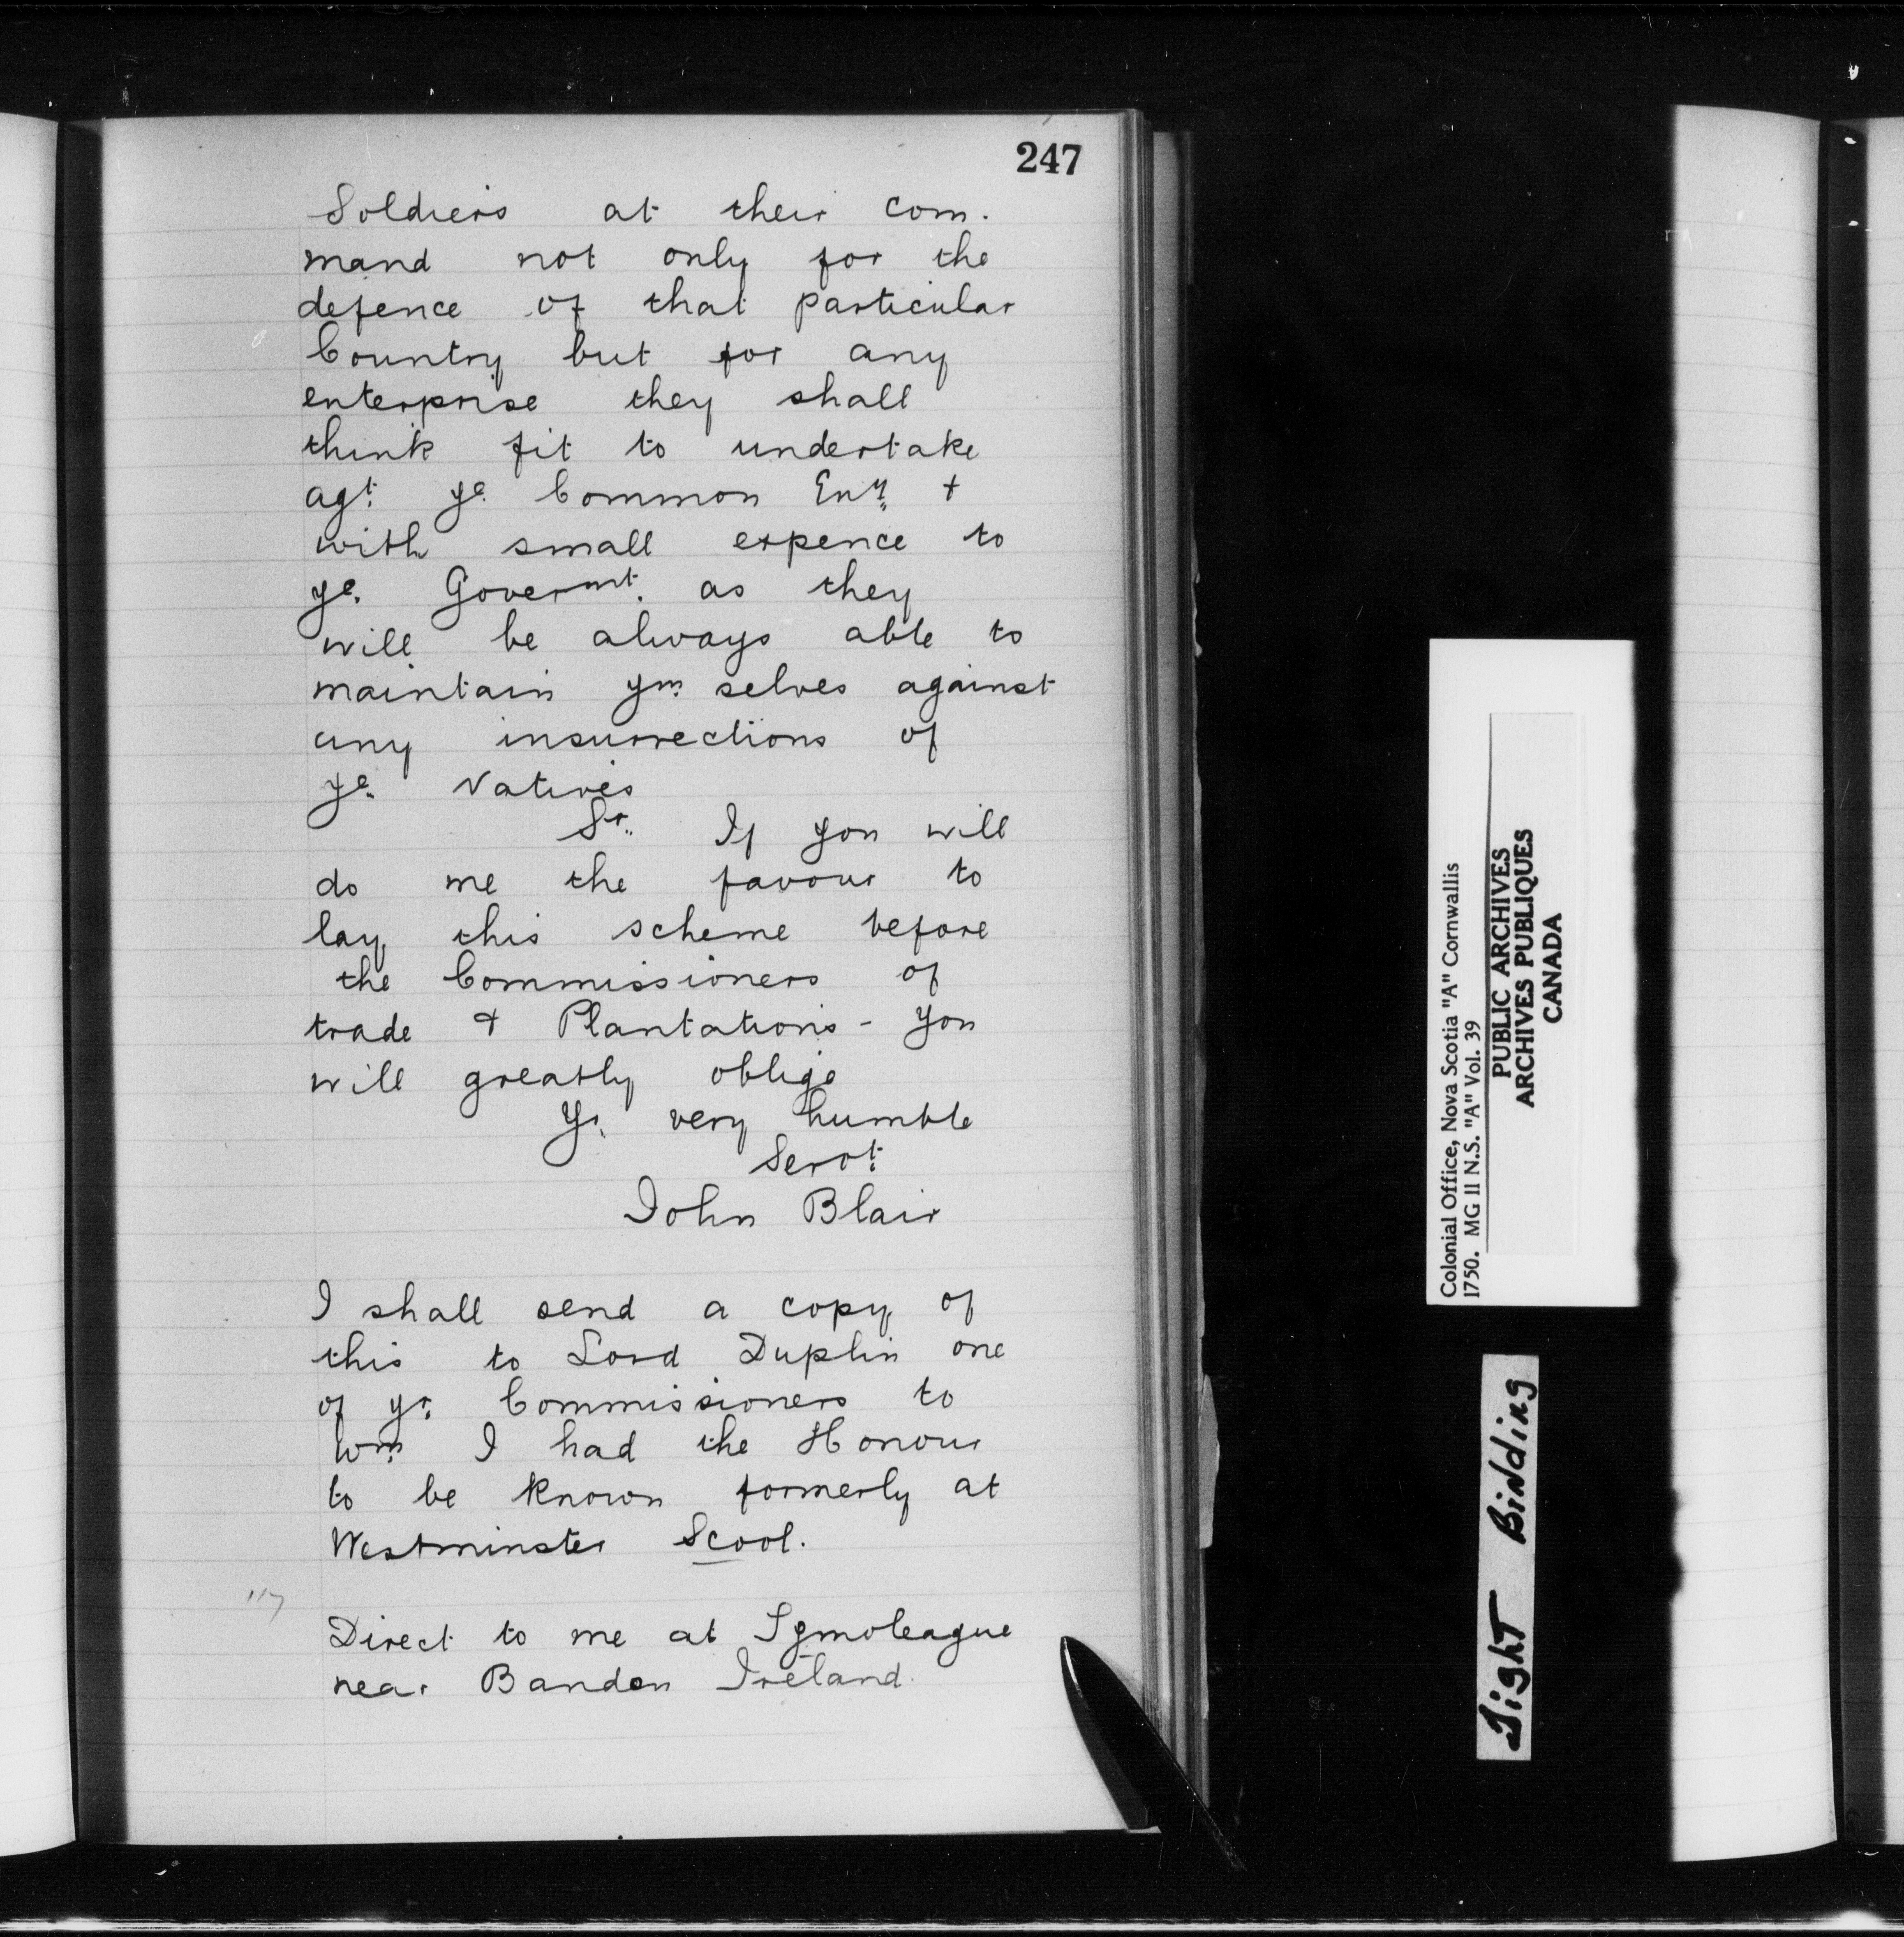 247
Soldiers at their com-
mand not only for the
defence of that particular
Country but for any
enterprise they shall
think fit to undertake
agt. ye. Common Eny. +
with small expence to
ye. Governmt. as they
will be always able to
maintain ym. selves against
any insurrections of
ye. Natives
Sr. If you will
do me the favour to
lay this scheme before
the Commissioners of
trade & Plantations - you
will greatly oblige
Yr. very humble
Servt.
John Blair
I shall send a copy of
this to Lord Duplin one
of yr. Commissioners to
wm. I had the Honour
to be known formerly at
Westminster Scool.
117
Direct to me at Tymoleague
near Bandon Ireland.
Colonial Office, Nova Scotia "A" Cornwallis
1750. MG 11 N.S. "A" Vol. 39
PUBLIC ARCHIVES
ARCHIVES PUBLIQUES
CANADA
Tight Binding